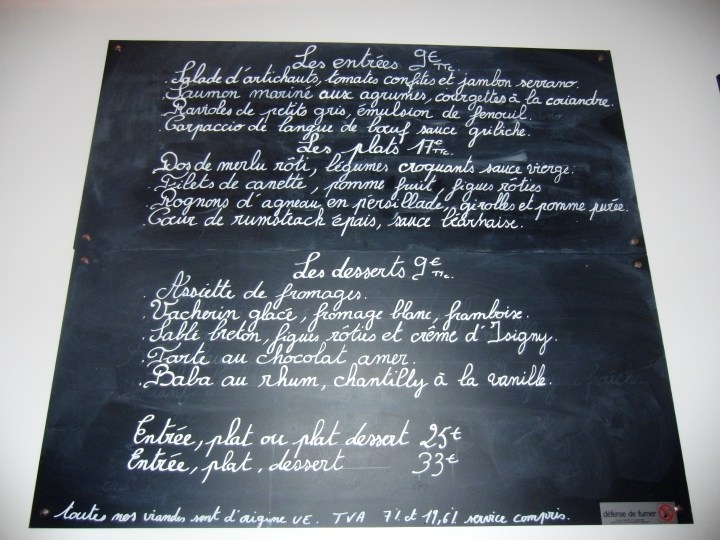 Les entrées 9€ TTC.
. Salade d'artichauts, tomates confites et jambon serrano.
. Saumon mariné aux agrumes, courgettes à la coriandre.
. Ravioles de petits gris, émulsion de fenouil.
. Carpaccio de langue de bœuf sauce gribiche.
Les plats 17€ TTC.
. Dos de merlu rôti, légumes croquants sauce vierge.
. Filets de canette, pomme fruit, figues rôties
. Rognons d'agneau en persillade, girolles et pomme purée.
. Cœur de rumsteack épais, sauce béarnaise.
Les desserts 9€ TTC.
. Assiette de fromages.
. Vacherin glacé, fromage blanc, framboise.
. Sablé breton, figues rôties et crème d'Isigny.
. Tarte au chocolat amer.
. Baba au rhum, chantilly à la vanille.
Entrée, plat ou plat dessert 25€
Entrée, plat, dessert 33€
toutes nos viandes sont d'origine UE. TVA 7% et 19,6% service compris.
défense de fumer